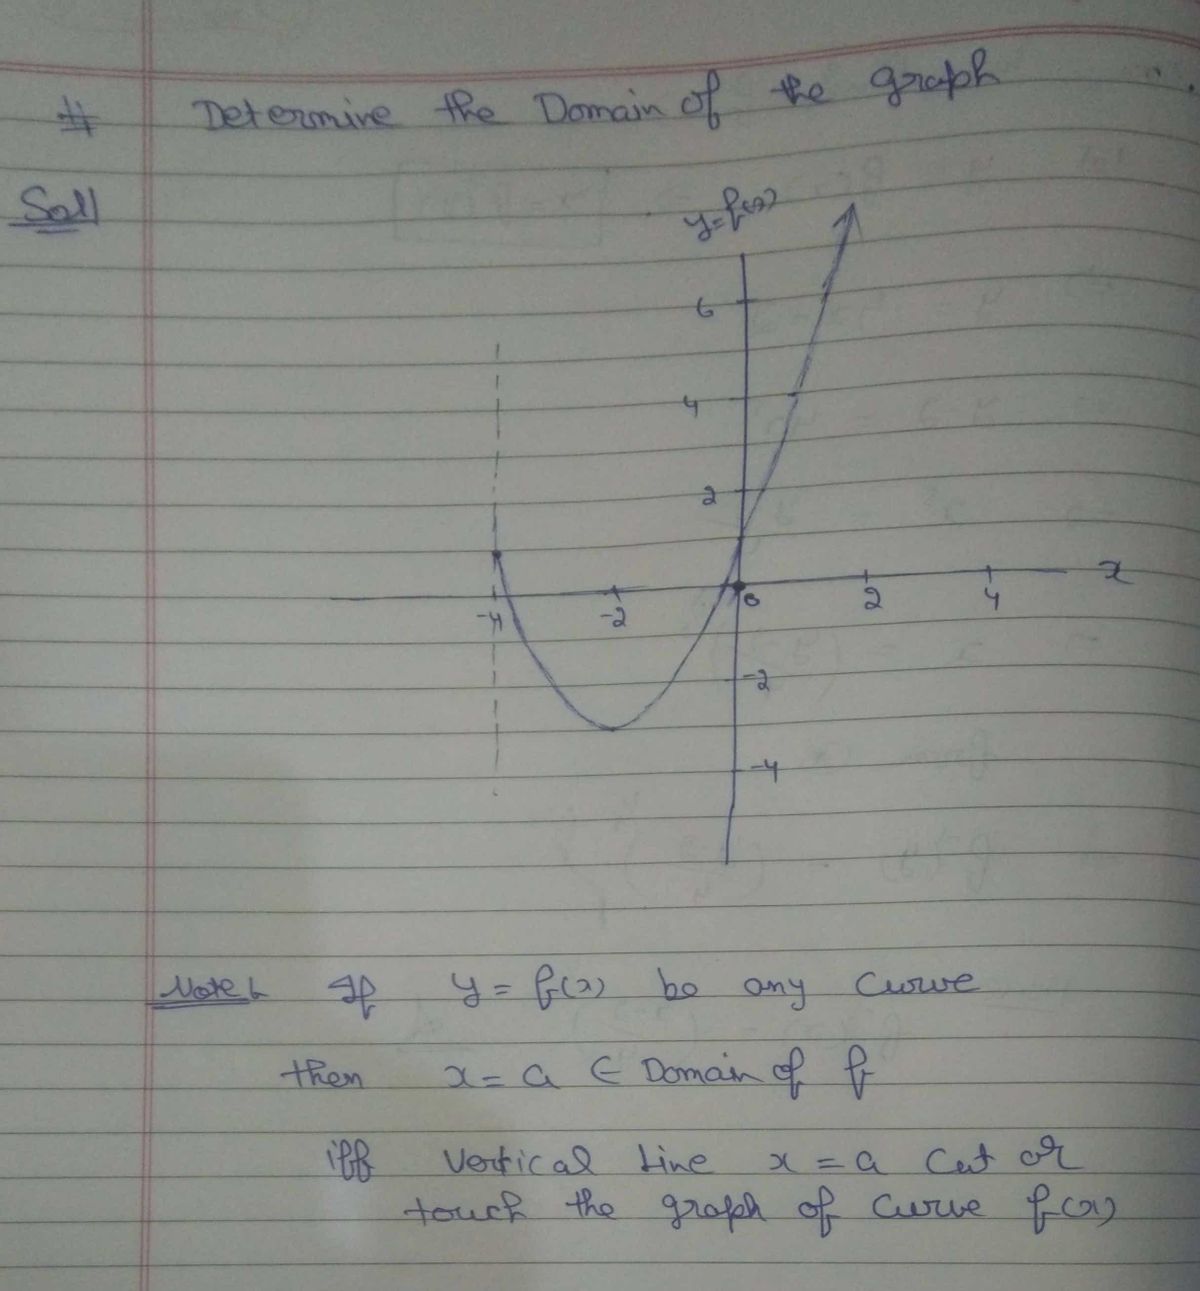 # Determine the Domain of the graph
Soll
y=f(x)
6
4
2
-4 -2 0 2 4 x
-2
-4
Note: If y = f(x) be any curve
then x = a ∈ Domain of f
iff vertical line x = a cut or
touch the graph of curve f(x)